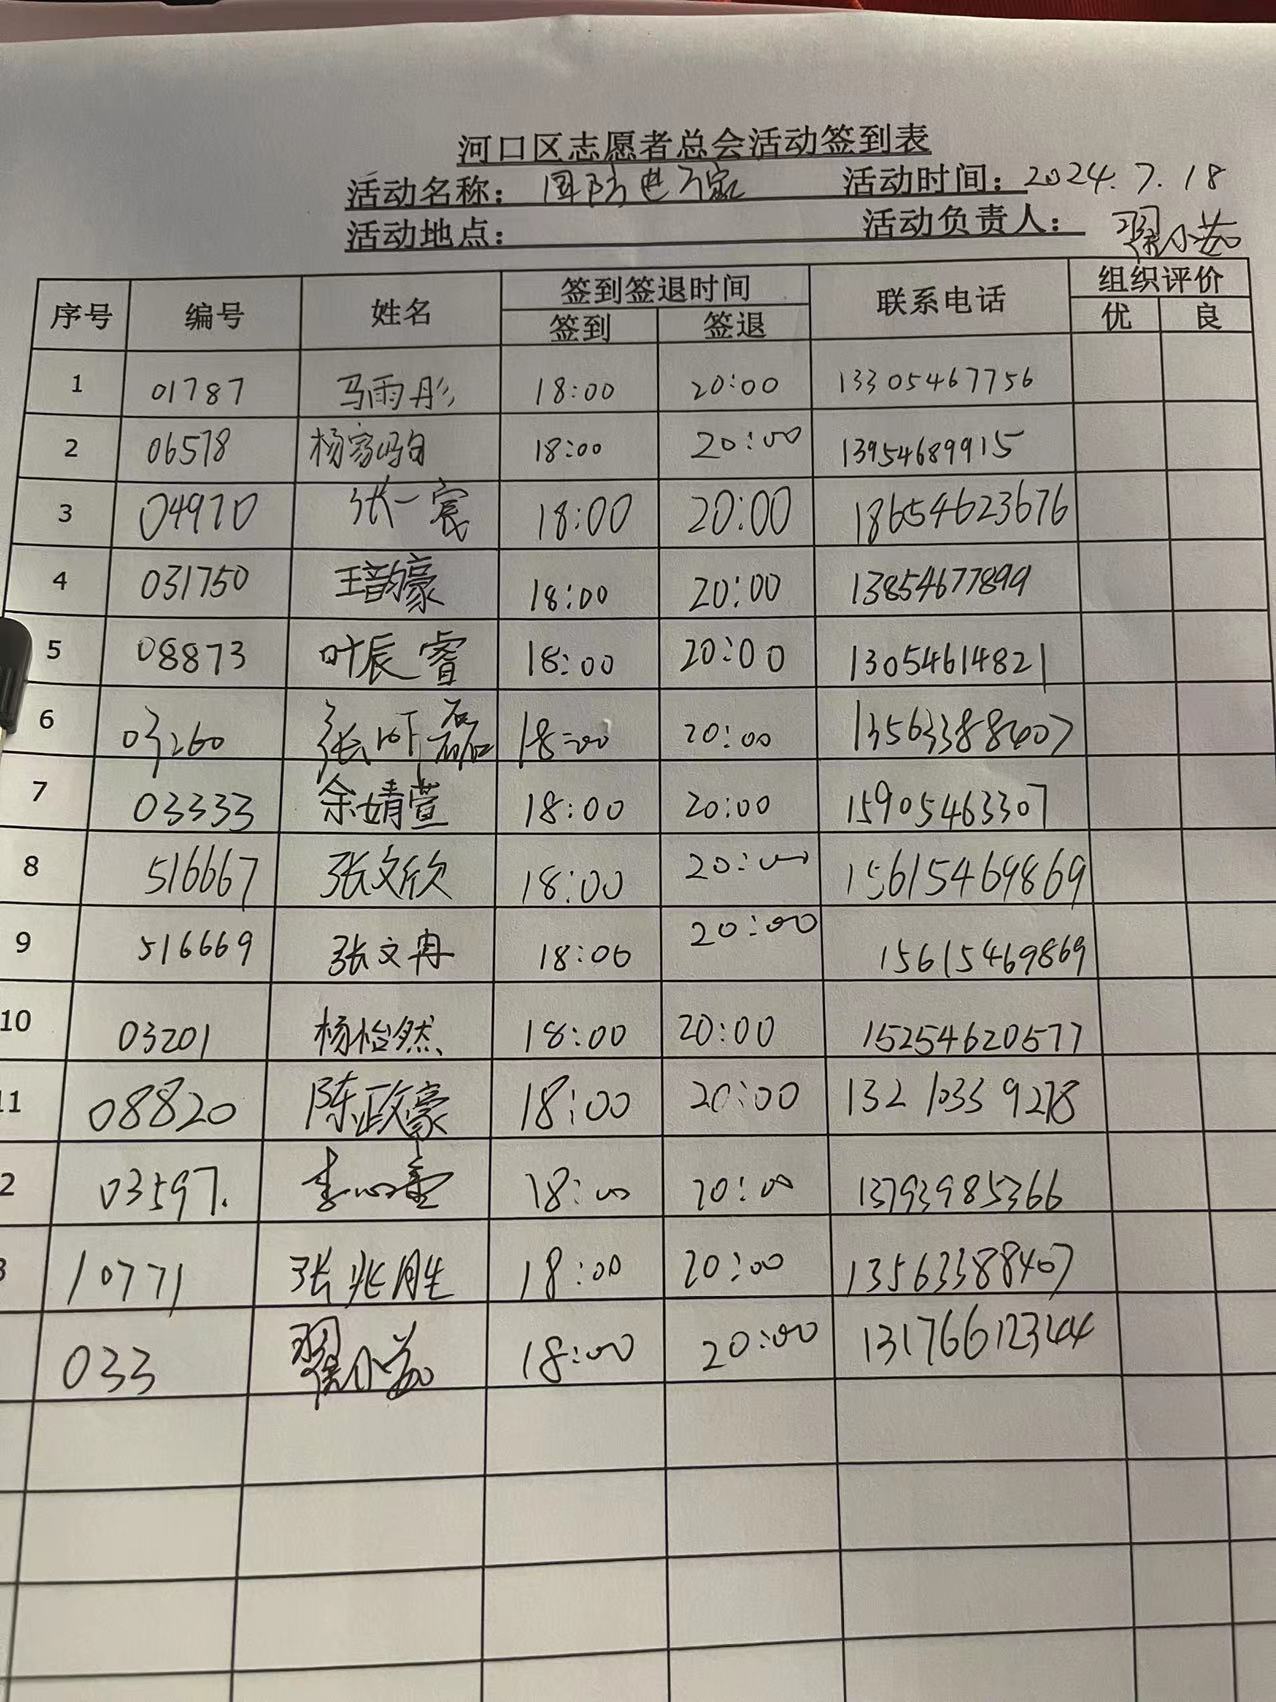 河口区志愿者总会活动签到表
活动名称：国防进万家 活动时间：2024.7.18
活动地点： 活动负责人：翟小茹
序号 编号 姓名 签到签退时间 联系电话 组织评价
签到 签退 优 良
1 01787 马雨彤 18:00 20:00 13305467756
2 06578 杨家 18:00 20:00 13954689915
3 04970 张一宸 18:00 20:00 18654623676
4 031750 王韵豪 18:00 20:00 13854677899
5 08873 叶辰睿 18:00 20:00 13054614821
6 03260 张昕磊 18:00 20:00 13563388407
7 03333 余婧萱 18:00 20:00 15905463307
8 516667 张文欣 18:00 20:00 15615469869
9 516669 张文冉 18:00 20:00 15615469869
10 03201 杨怡然 18:00 20:00 15254620577
11 08820 陈政豪 18:00 20:00 13210339278
2 03597. 李 18:00 20:00 13793985366
3 10771 张兆胜 18:00 20:00 13563388407
033 翟小茹 18:00 20:00 13176612344